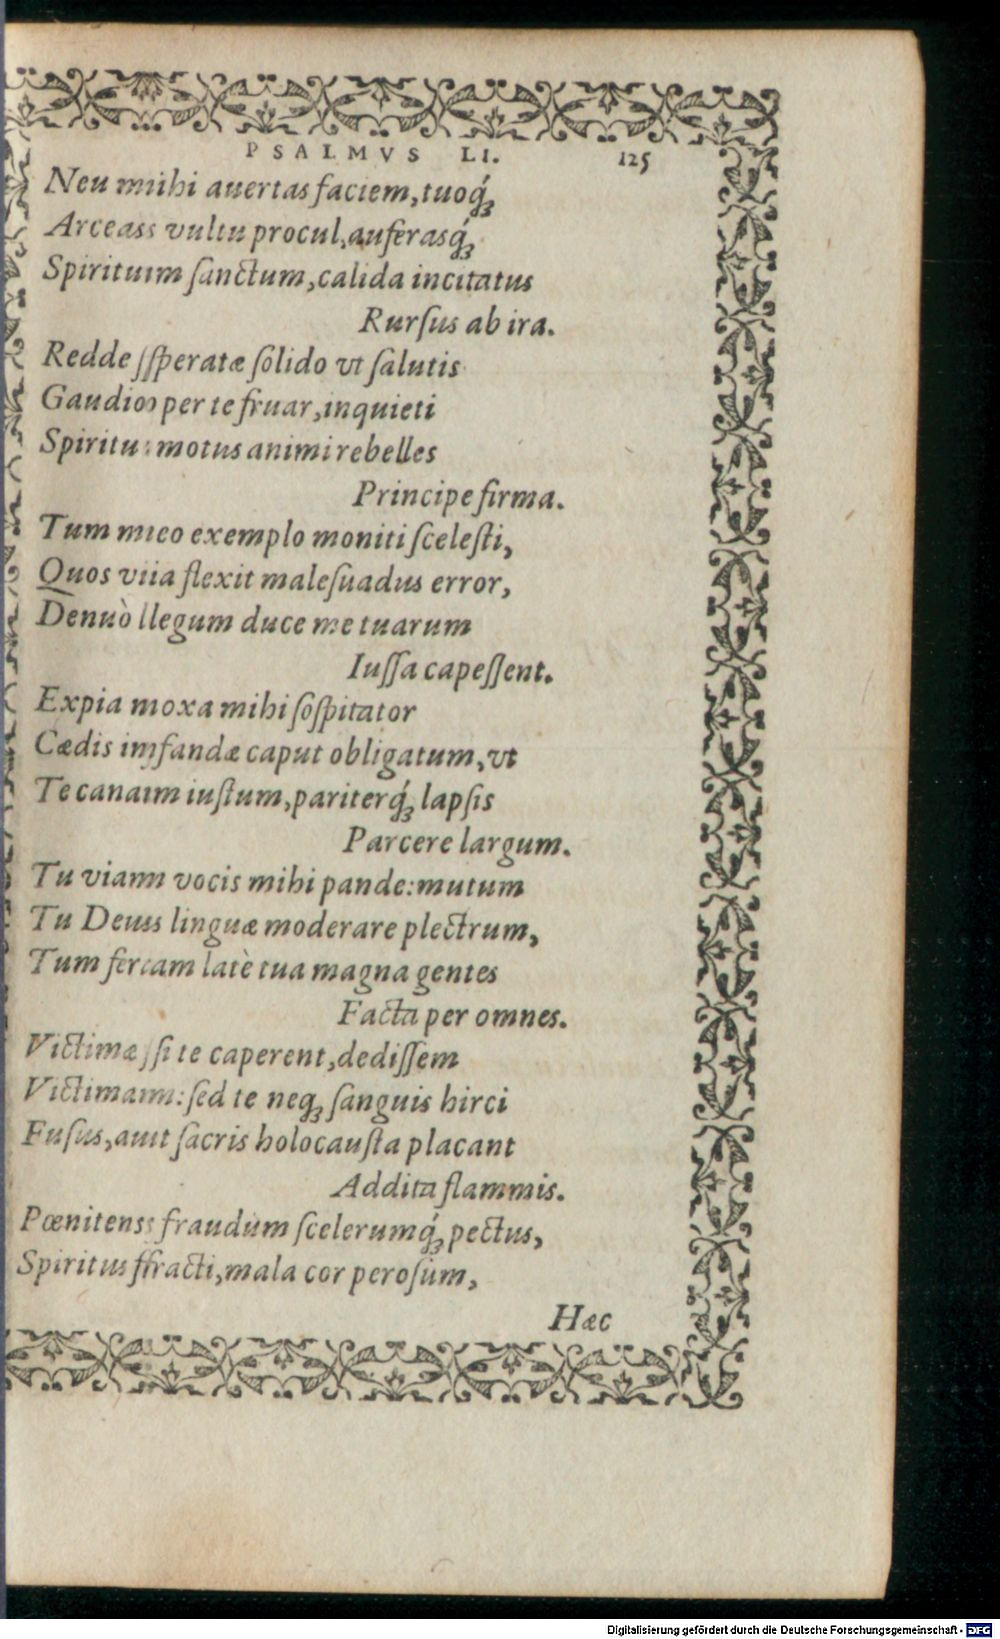 PSALMVS LI. 125
Neu mihi auertas faciem, tuoq́;
Arceas vultu procul, auferasq́;
Spiritum ſanctum, calida incitatus
Rurſus ab ira.
Redde ſperatæ ſolido vt ſalutis
Gaudio per te fruar, inquieti
Spiritu motus animi rebelles
Principe firma.
Tum meo exemplo moniti ſceleſti,
Quos via flexit maleſuadus error,
Denuò legum duce me tuarum
Iuſſa capeſſent.
Expia noxa mihi ſoſpitator
Cædis infandæ caput obligatum, vt
Te canam iuſtum, pariterq́; lapſis
Parcere largum.
Tu viam vocis mihi pande: mutum
Tu Deus linguæ moderare plectrum,
Tum feram latè tua magna gentes
Facta per omnes.
Victimæ ſi te caperent, dediſſem
Victimam: ſed te neq; ſanguis hirci
Fuſus, aut ſacris holocauſta placant
Addita flammis.
Pœnitens fraudum ſcelerumq́; pectus,
Spiritus fracti, mala cor peroſum,
Hæc
Digitalisierung gefördert durch die Deutsche Forschungsgemeinschaft - DFG